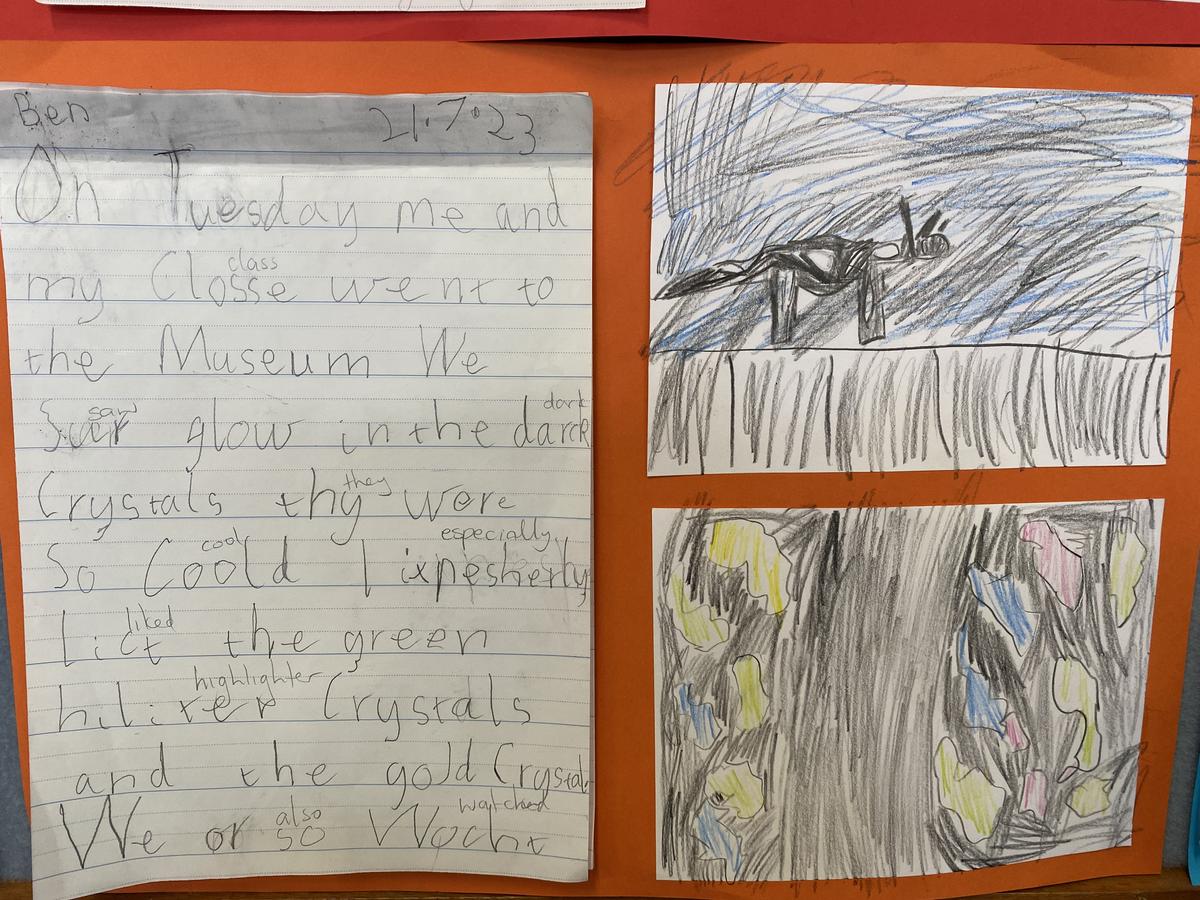 Ben 21.7.23
On Tuesday me and
class
my Closse went to
the Museum We
saw dark
Sar glow in the darck
they
Crystals thy were
cool especially
So Coold I ixpesherly
liked
Lict the green
highlighter
hiliter Crystals
and the gold Crystals
also watched
We or so Wocht